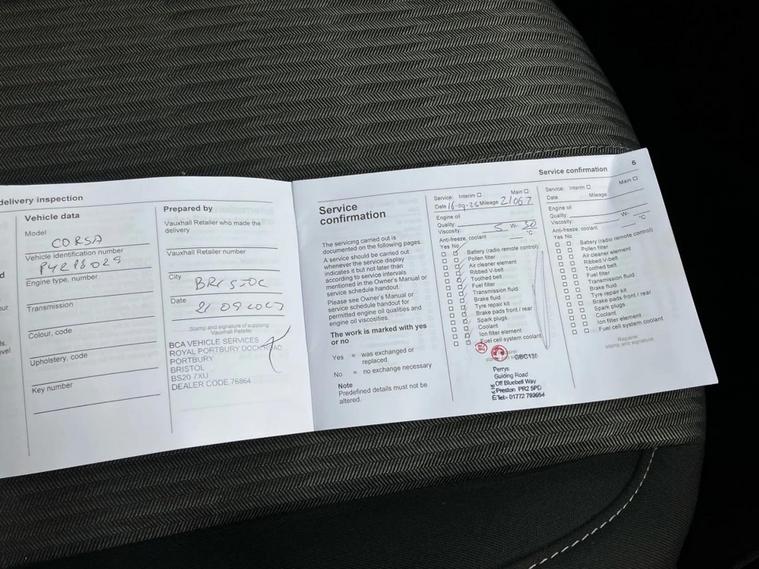 delivery inspection
Vehicle data
Model
CORSA
Vehicle identification number
P4218029
Engine type, number
Transmission
Colour, code
Upholstery, code
Key number
Prepared by
Vauxhall Retailer who made the
delivery
Vauxhall Retailer number
City
BRISTOL
Date
Stamp and signature of supplying
Vauxhall Retailer
BCA VEHICLE SERVICES
ROYAL PORTBURY DOCK ROAD
PORTBURY
BRISTOL
BS20 7XU
DEALER CODE 76864
Service
confirmation
The servicing carried out is
documented on the following pages.
A service should be carried out
whenever the service display
indicates it but not later than
according to service intervals
mentioned in the Owner's Manual or
service schedule handout.
Please see Owner's Manual or
service schedule handout for
permitted engine oil qualities and
engine oil viscosities.
The work is marked with yes
or no
Yes = was exchanged or
replaced.
No = no exchange necessary
Note
Predefined details must be not
altered.
Service: Interim Main
Date 16-09-25 Mileage 21067
Engine oil
Quality:
Viscosity: 5 W- 30
Anti-freeze, coolant °C
Yes No
Battery (radio remote control)
Pollen filter
Air cleaner element
Ribbed V-belt
Toothed belt
Fuel filter
Transmission fluid
Brake fluid
Tyre repair kit
Brake pads front / rear
Spark plugs
Coolant
Ion filter element
Fuel cell system coolant
Perrys
Guilding Road
Off Bluebell Way
Preston PR2 5PD
Service confirmation
5
Service: Interim Main
Date Mileage
Engine oil
Quality
Viscosity: W-
Anti-freeze, coolant °C
Yes No
Battery (radio remote control)
Pollen filter
Air cleaner element
Ribbed V-belt
Toothed belt
Fuel filter
Transmission fluid
Brake fluid
Tyre repair kit
Brake pads front / rear
Spark plugs
Coolant
Ion filter element
Fuel cell system coolant
Retailer
stamp and signature